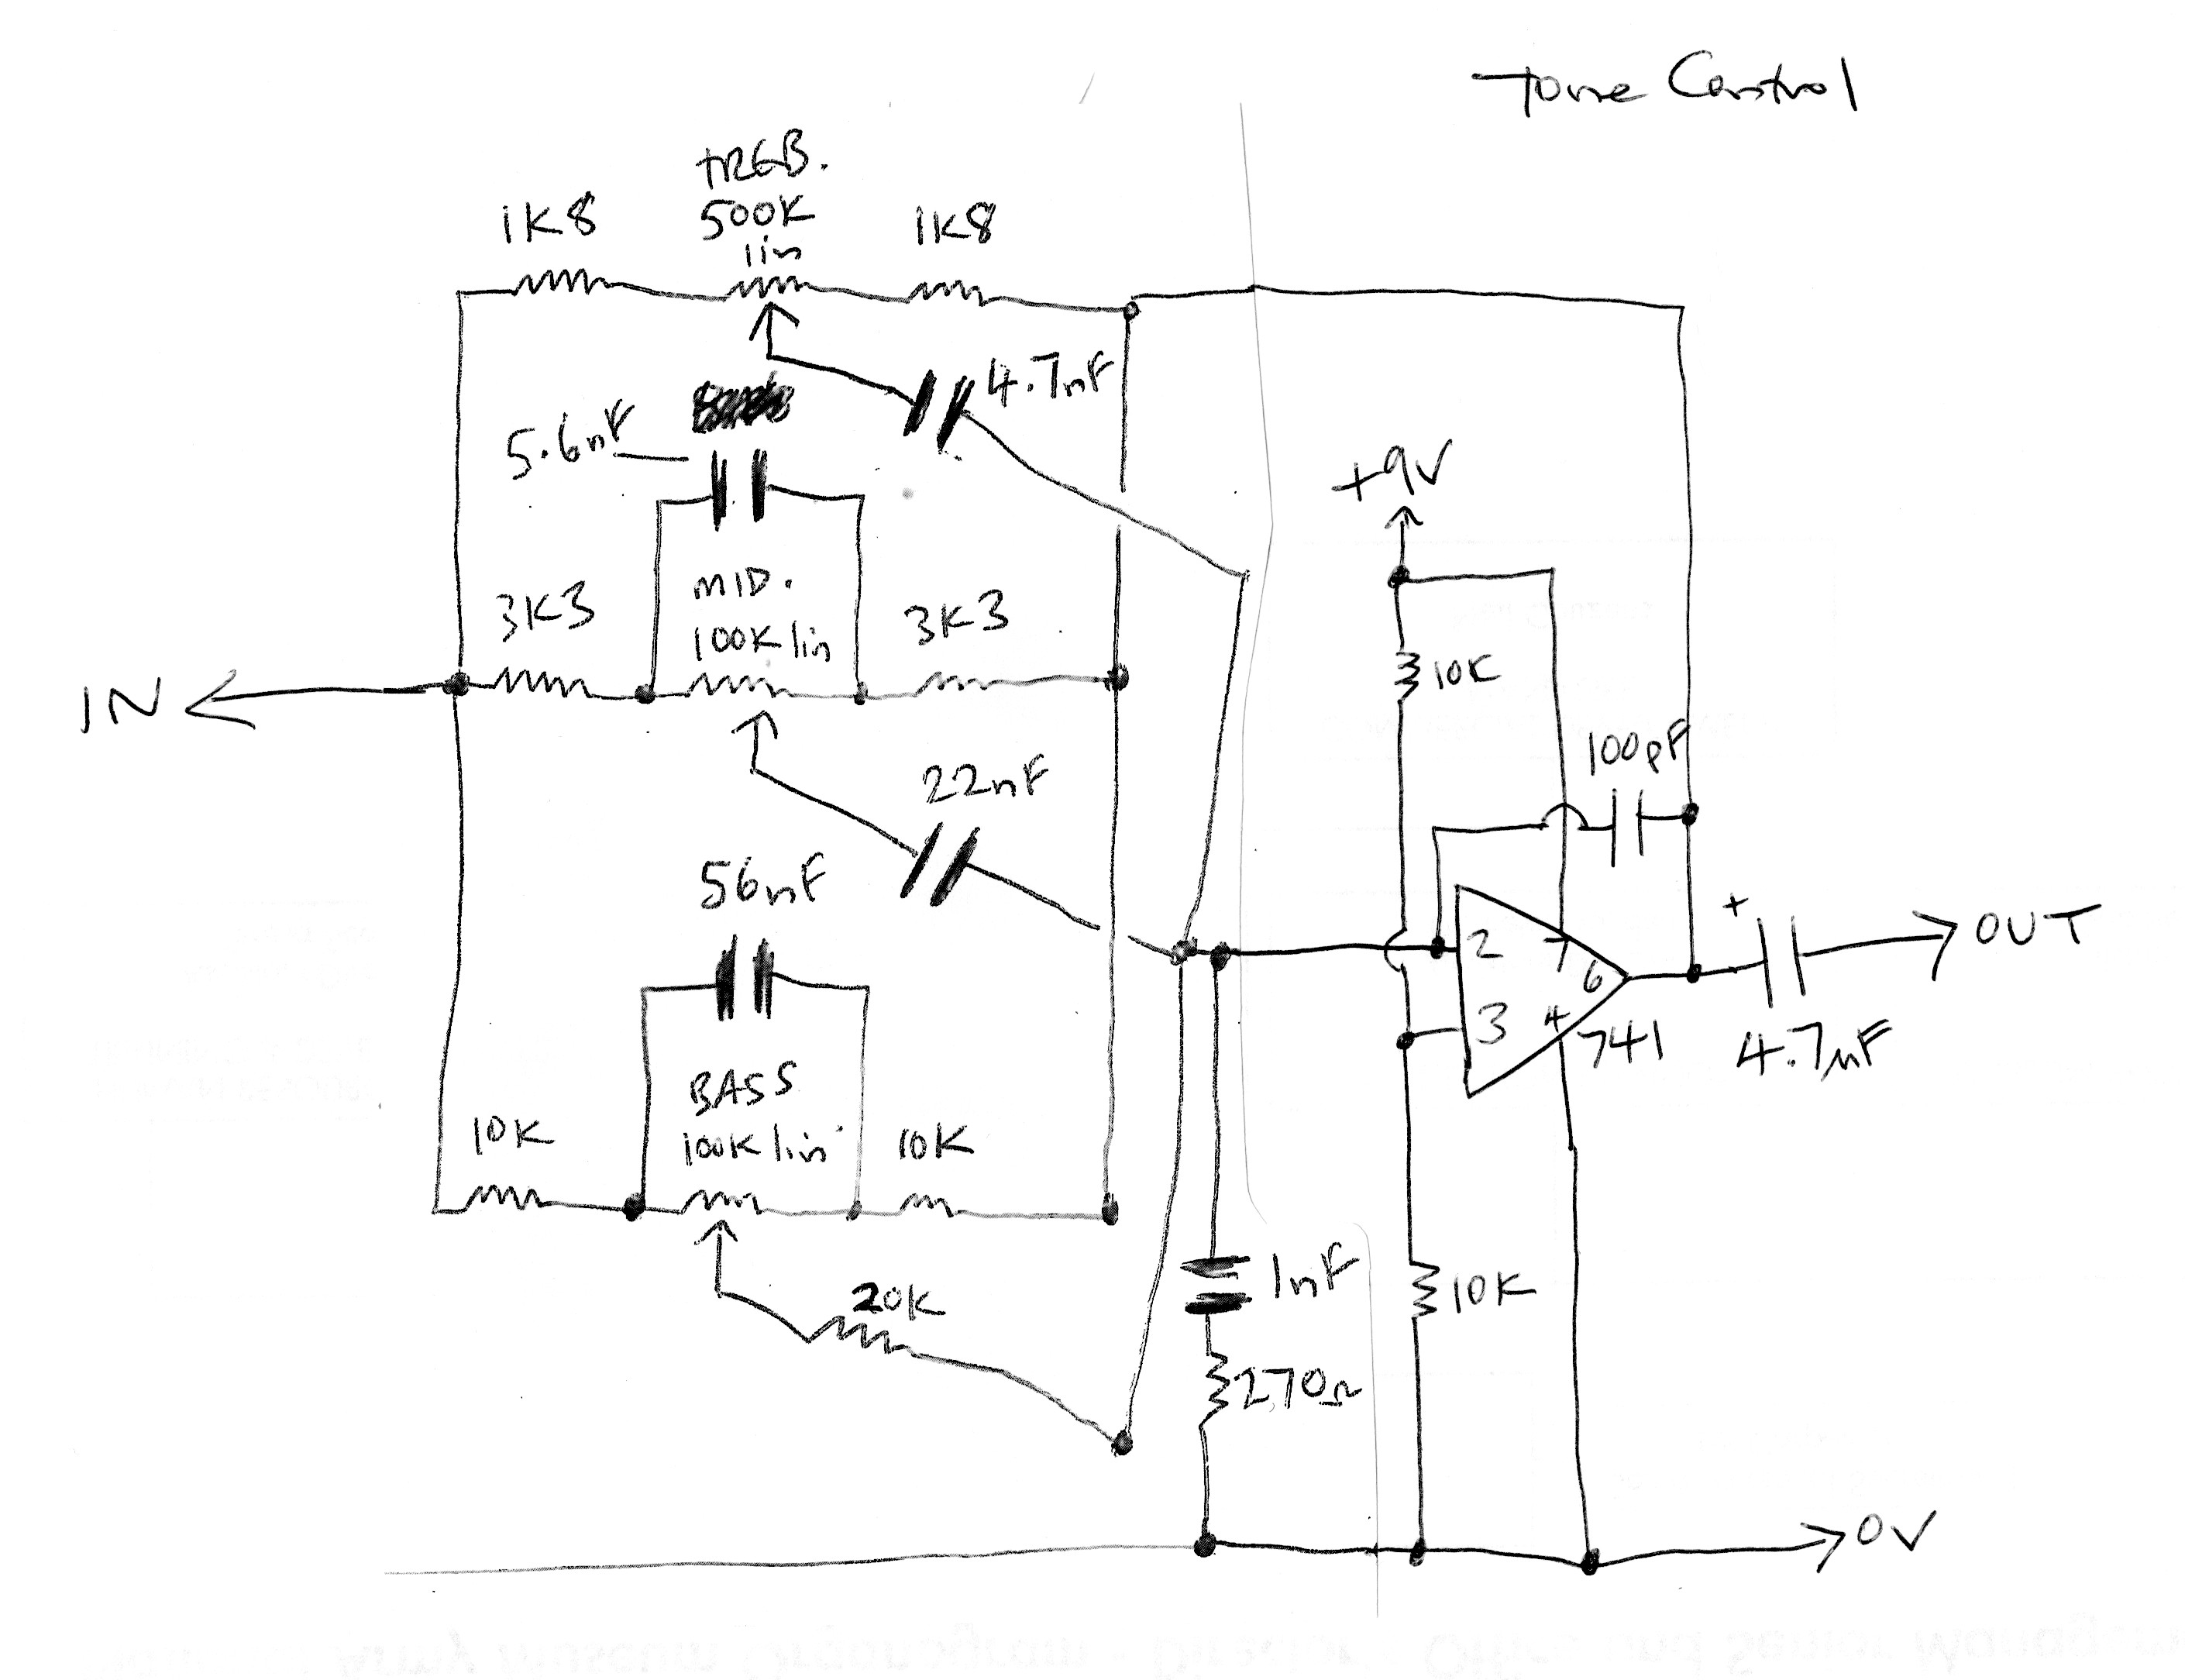 Tone Control
TREB.
500K
lin
1K8
1K8
4.7nF
5.6nF
+9V
MID.
100K lin
3K3
3K3
10K
IN
100pF
22nF
56nF
2
7
6
OUT
3
4
741
4.7µF
+
BASS
100K lin
10K
10K
1nF
10K
20K
270Ω
0V